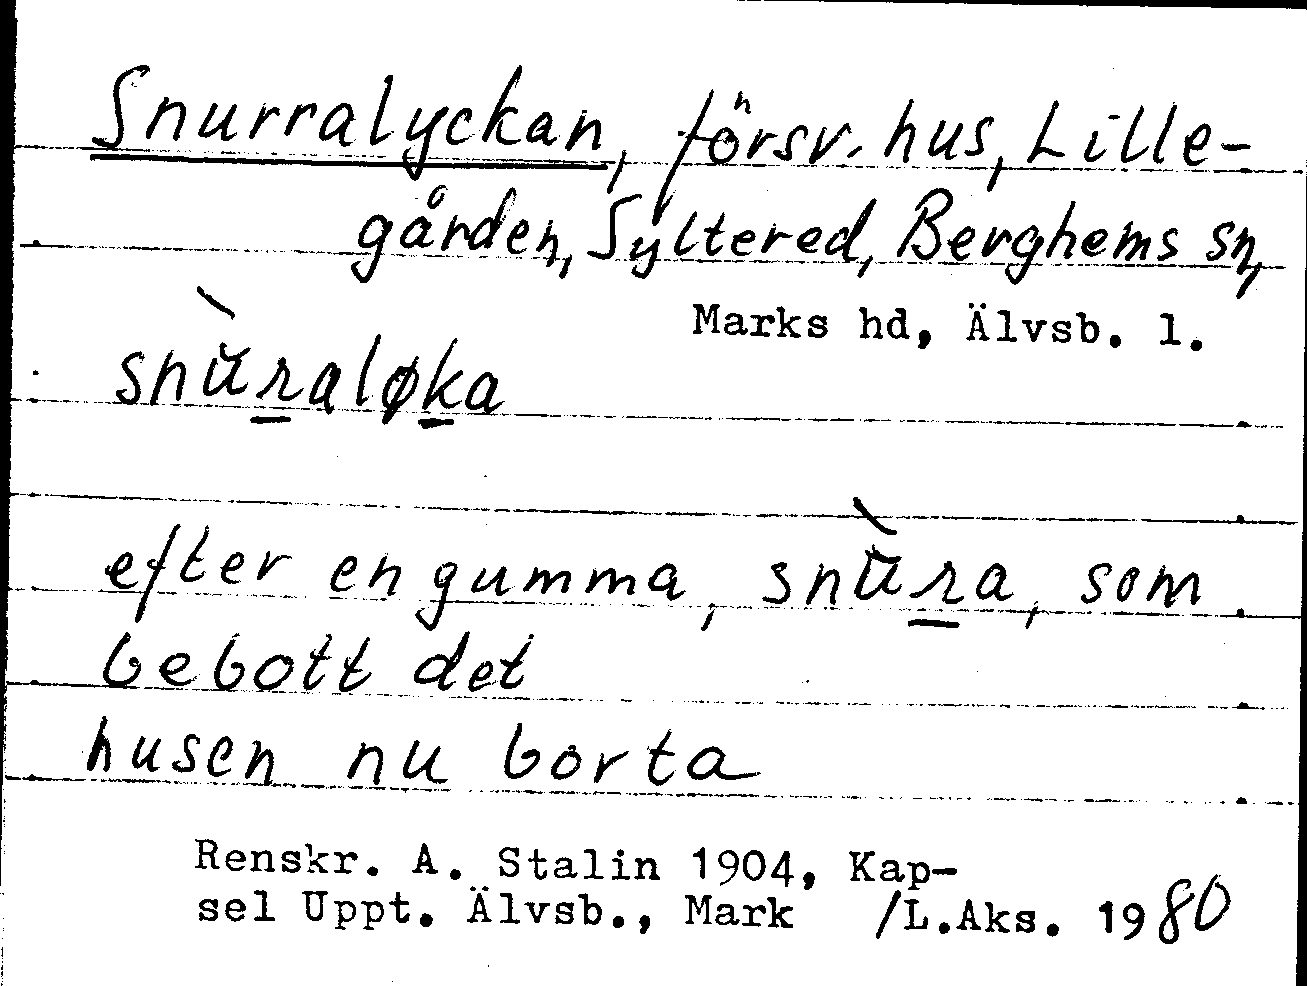 Snurralyckan, försv. hus, Lille-
gården, Syltered, Berghems sn,
Marks hd, Älvsb. l.
snùraløka
efter en gumma, snùra, som
bebott det
husen nu borta
Renskr. A. Stalin 1904, Kap-
sel Uppt. Älvsb., Mark /L.Aks. 1980